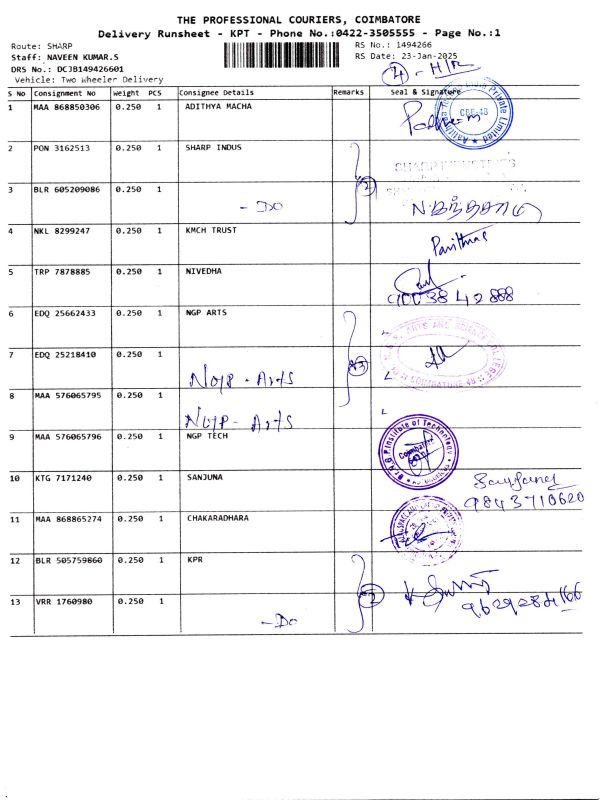 THE PROFESSIONAL COURIERS, COIMBATORE
Delivery Runsheet - KPT - Phone No.:0422-3505555 - Page No.:1
Route: SHARP
RS No.: 1494266
Staff: NAVEEN KUMAR.S
RS Date: 23-Jan-2025
DRS No.: DCJB149426601
Vehicle: Two Wheeler Delivery
4 - H/R
S No Consignment No Weight PCS Consignee Details Remarks Seal & Signature
1 MAA 868850306 0.250 1 ADITHYA MACHA
Private Limited CBE-48
2 PON 3162513 0.250 1 SHARP INDUS
SHARP INDUSTRIES
3 BLR 605209086 0.250 1
- DO 2 N.கந்தசாமி
4 NKL 8299247 0.250 1 KMCH TRUST
5 TRP 7878885 0.250 1 NIVEDHA
6 EDQ 25662433 0.250 1 NGP ARTS
ARTS AND SCIENCE COLLEGE
COIMBATORE 48
7 EDQ 25218410 0.250 1 3
NGP - Arts
8 MAA 576065795 0.250 1
NGP - Arts
9 MAA 576065796 0.250 1 NGP TECH
Dr.N.G.P.Institute of Technology
Coimbatore
10 KTG 7171240 0.250 1 SANJUNA
9843710620
11 MAA 868865274 0.250 1 CHAKARADHARA
12 BLR 505759860 0.250 1 KPR
2
13 VRR 1760980 0.250 1
- Do